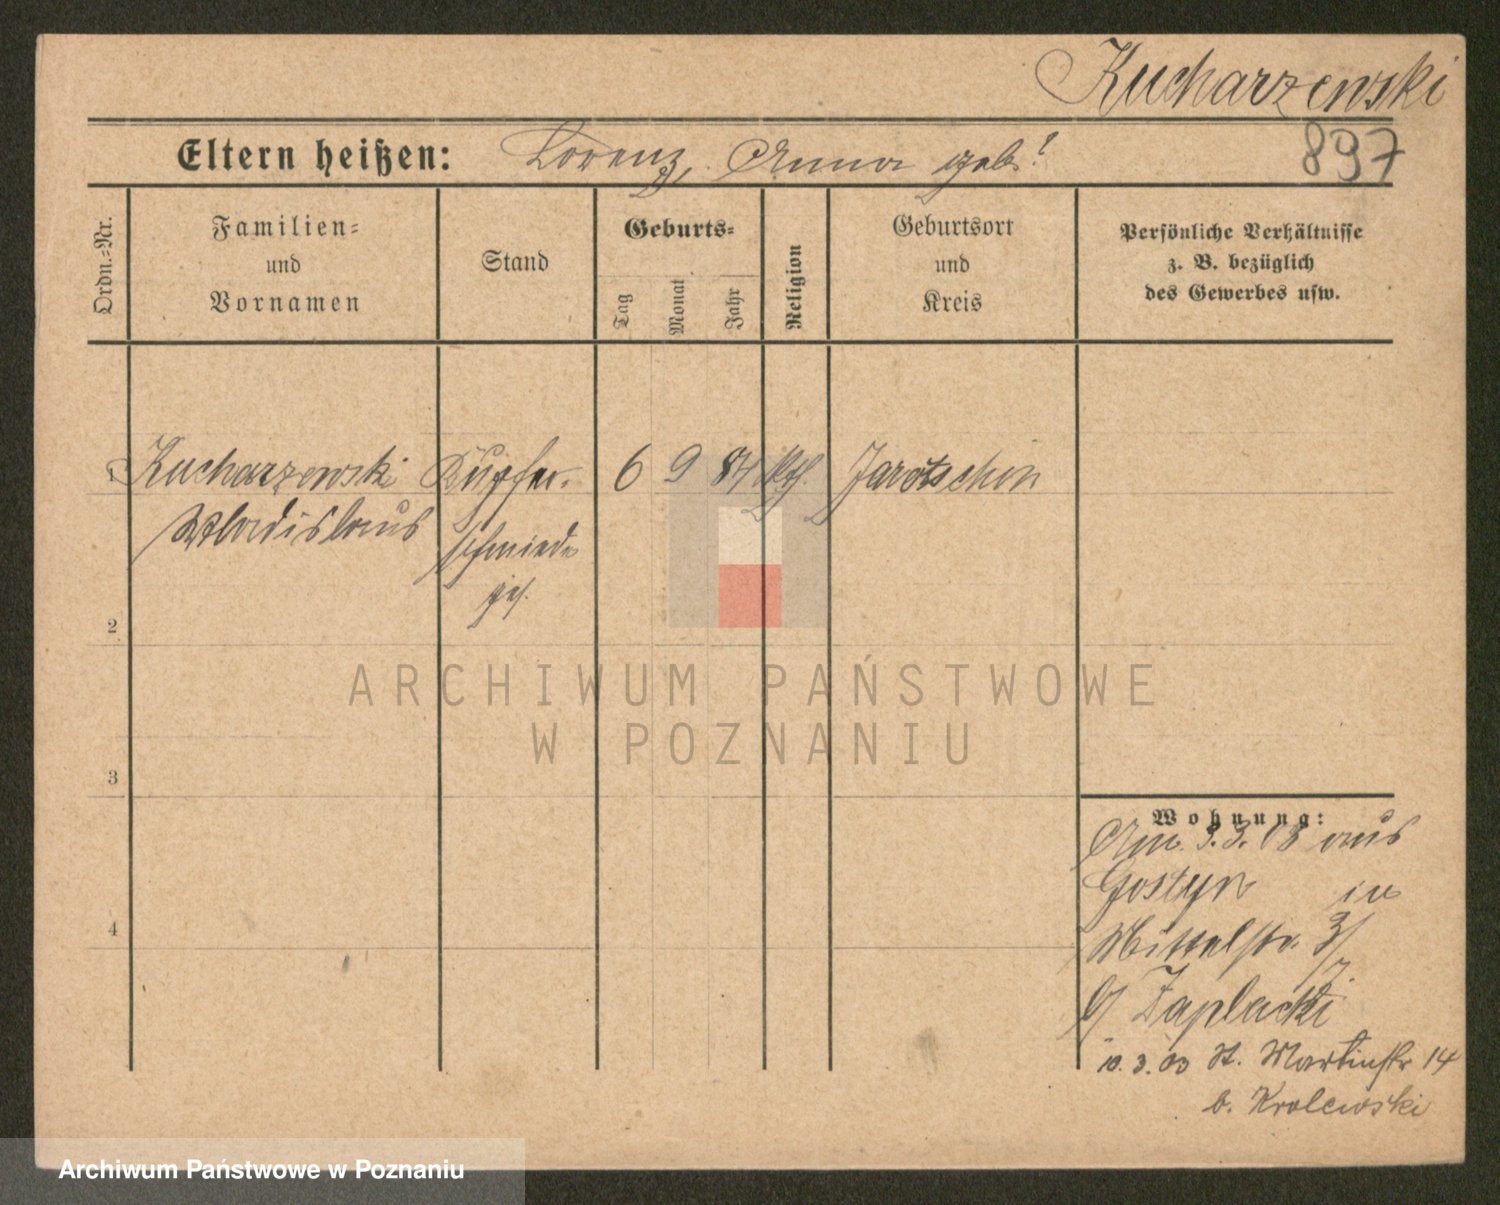 Kucharzewski
Eltern heißen: Lorenz, Anna geb. ?
897
Ordn.-Nr.
Familien-
und
Vornamen
Stand
Geburts-
Tag
Monat
Jahr
Religion
Geburtsort
und
Kreis
Persönliche Verhältnisse
z. B. bezüglich
des Gewerbes usw.
Kucharzewski Kupfer- 6 9 84 kth. Jarotschin
Wladislaus schmiede
ges.
2
3
4
ARCHIWUM PAŃSTWOWE
W POZNANIU
Wohnung:
Am 3. 3. 03 aus
Gostyn in
Mittelstr. 3/7
b/ Zaplacki
10. 3. 03 St. Martinstr 14
b. Krolewski
Archiwum Państwowe w Poznaniu